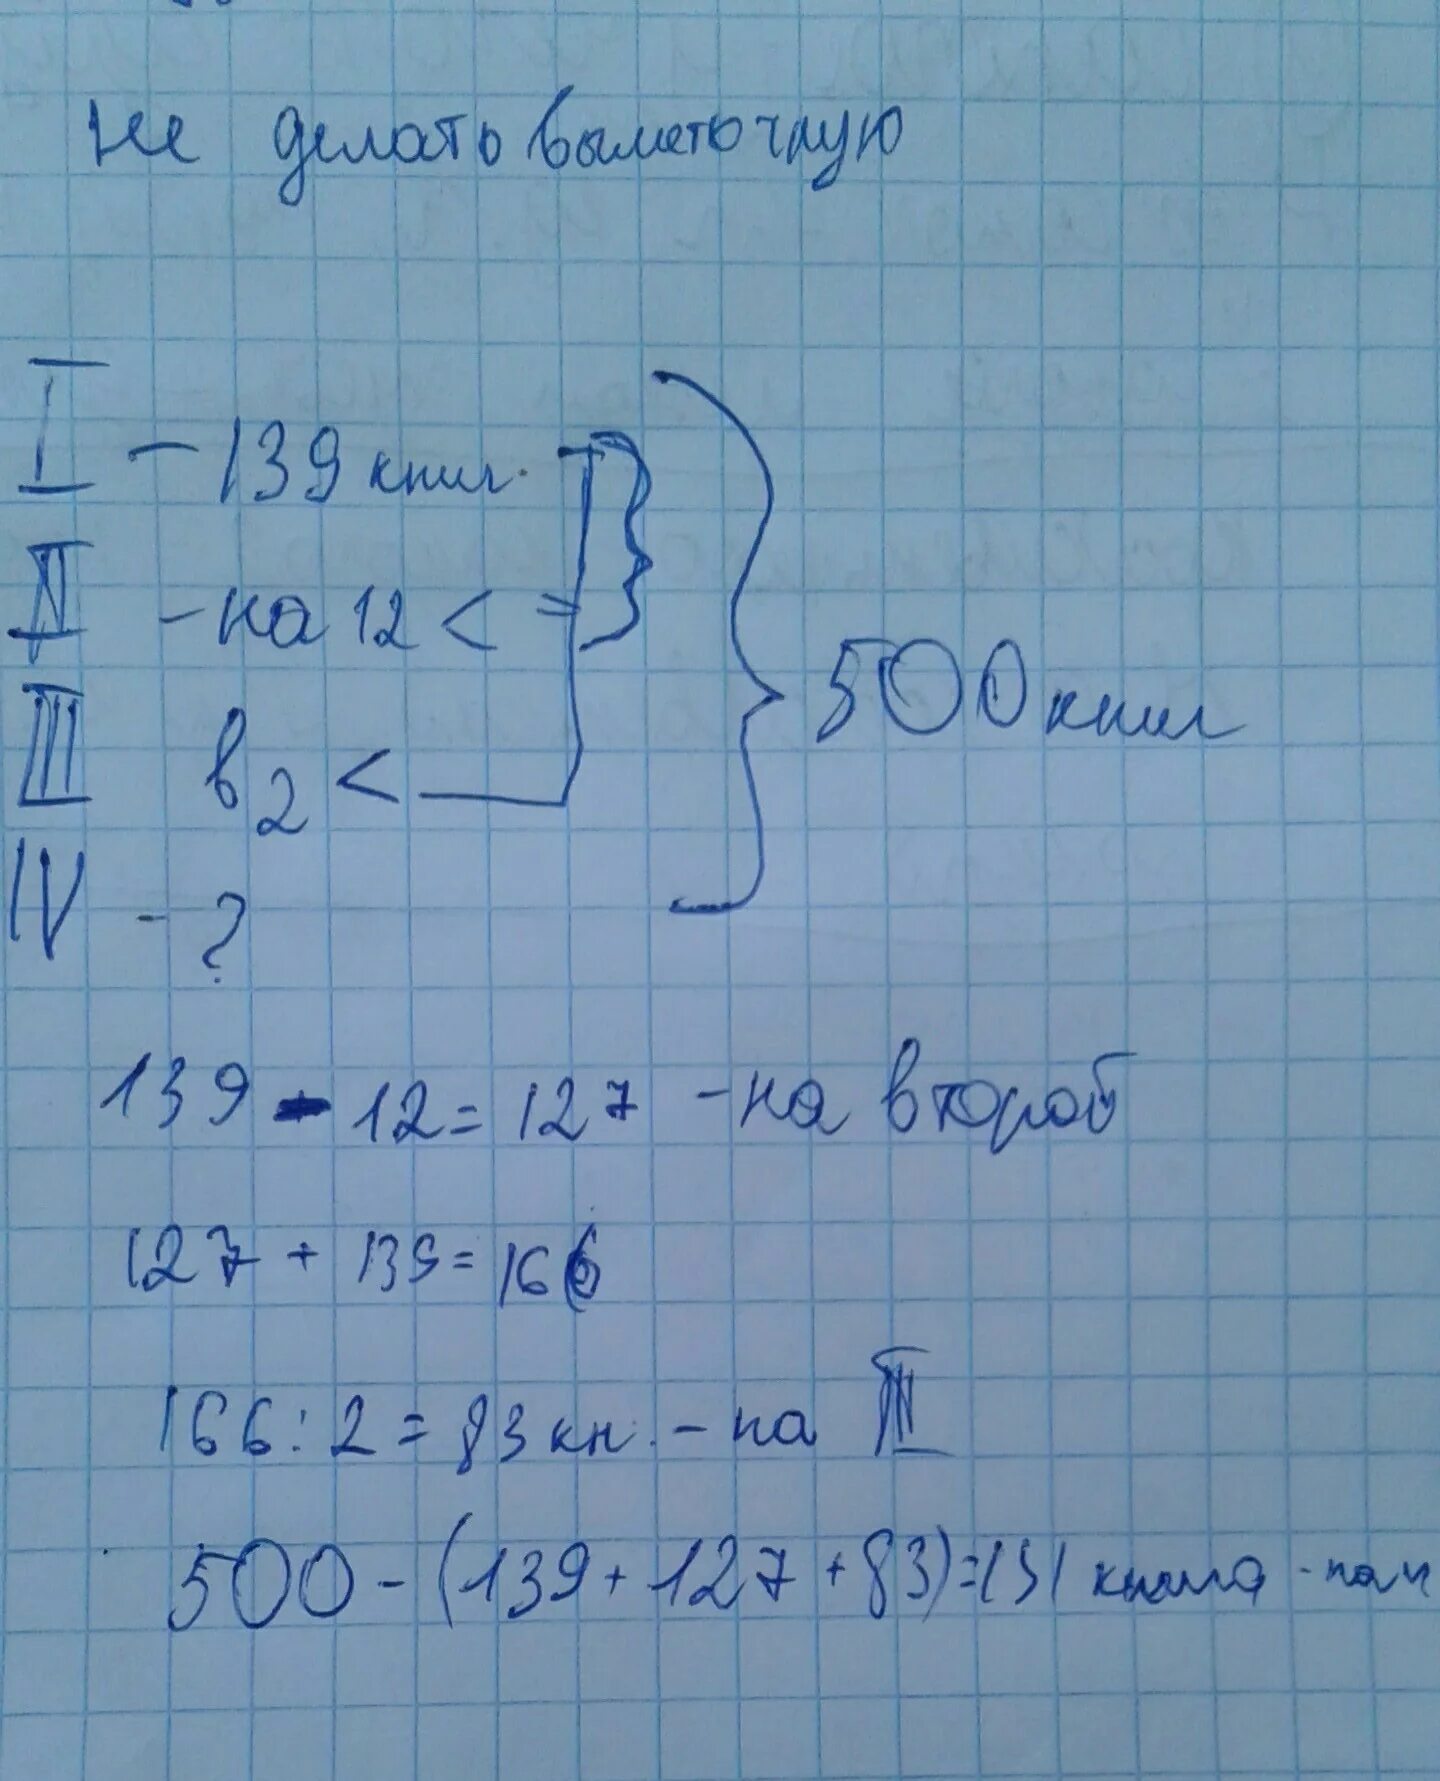 не делать
I - 139 книг.
II - на 12 < =
III в 2 <
500 книг
IV - ?
139 - 12 = 127 - на второй
127 + 139 = 166
166 : 2 = 83 кн. - на III
500 - (139 + 127 + 83) = 151 книга -